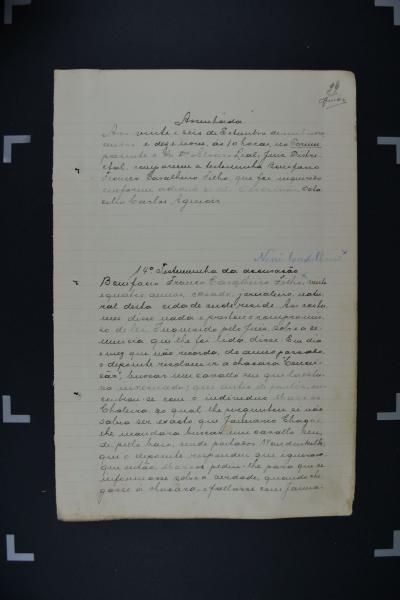 Assentada
Aos vinte e seis de Setembro de mil nove
centos e dezenove, ás 10 horas, no Forum
presente o Dr. Alvaro Leal, Juiz Distri-
ctal, compareceu a testemunha Bonifacio
Franco Cavalheiro Filho, que foi inquirido
conforme adiante se vê. O escrivão
Carlos Aguiar
14ª Testemunha da accusação
Bonifacio Franco Cavalheiro Filho, vinte
e quatro annos, casado, jornaleiro, natu-
ral desta cidade onde reside. Aos costu-
mes disse nada e prestou o compromis-
so de lei. Inquirido pelo Juiz sobre a de-
nuncia que lhe foi lida, disse: Em dia
e mez que não recorda, do anno passado,
o depoente resolveu ir a chacara
buscar um cavallo seu que
que antes de partir, en-
controu-se com o individuo Marcos
ao qual lhe perguntou se não
sabia ser exacto que Januario Chaga
lhe mandara buscar um cavallo seu,
de pello baio, sendo portador
que o depoente respondeu que ignorava,
que então Marcos pediu-lhe para que se
informasse sobre a verdade, quando che-
gasse á chacara, e fallasse com Janua-